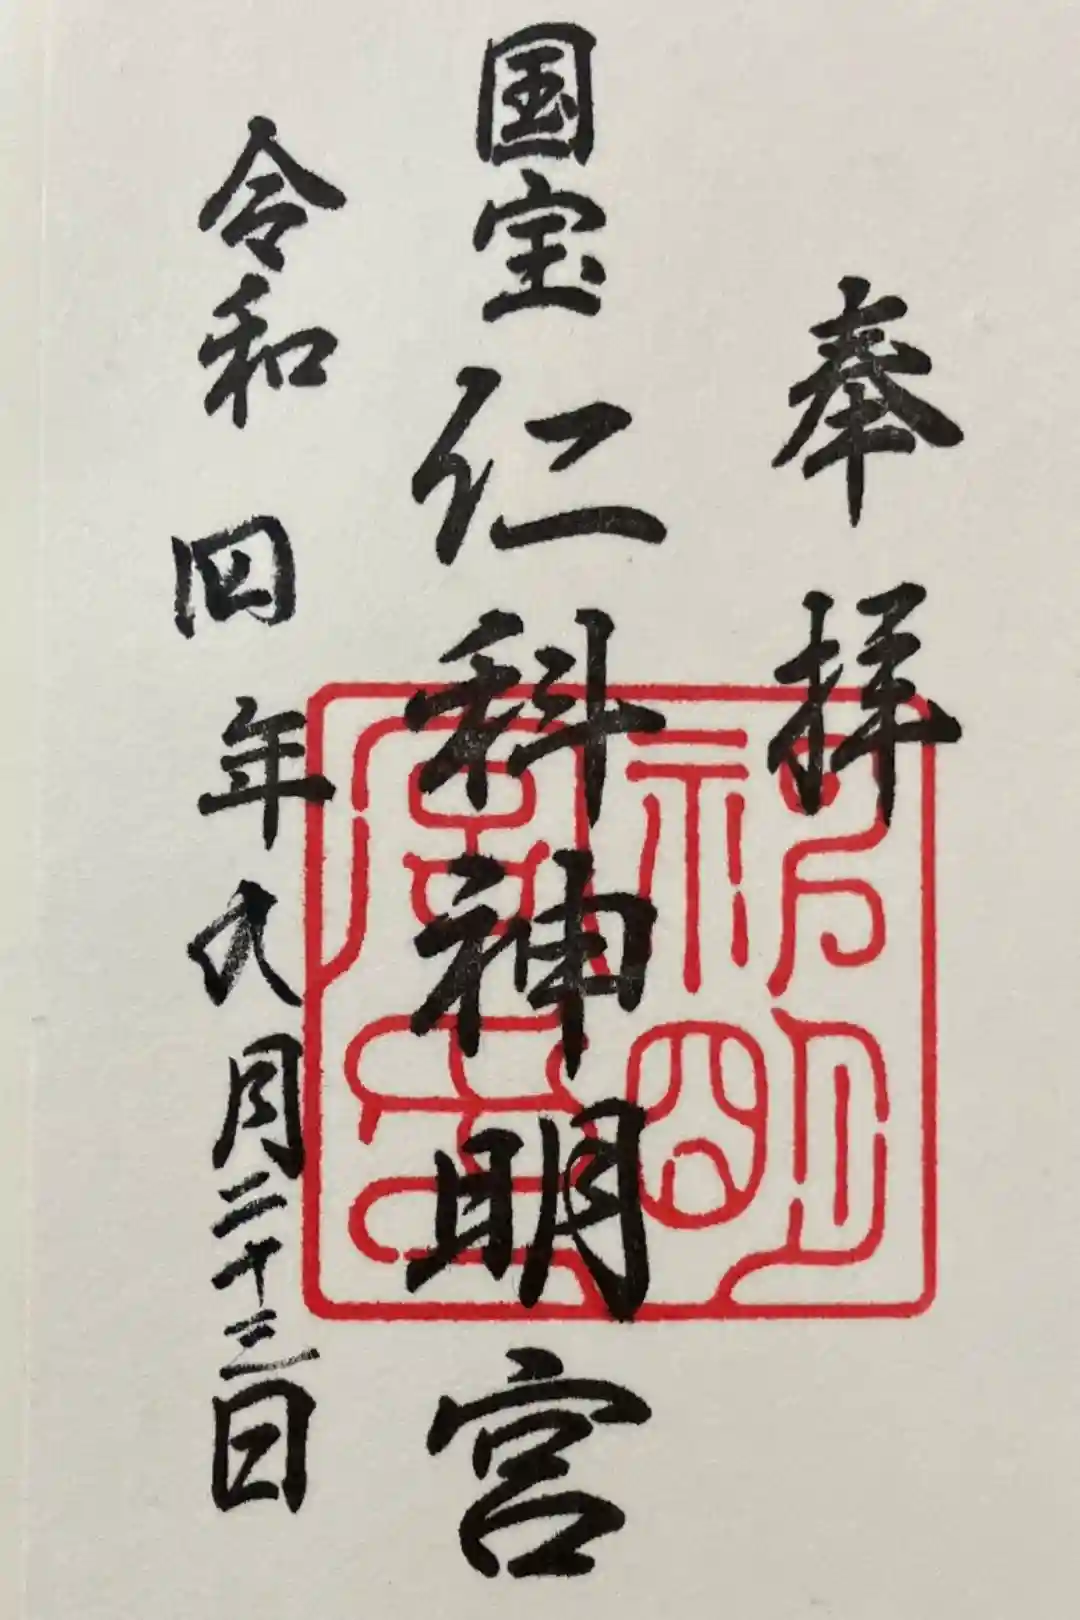 奉拝
国宝 仁科神明宮
令和四年九月二十三日